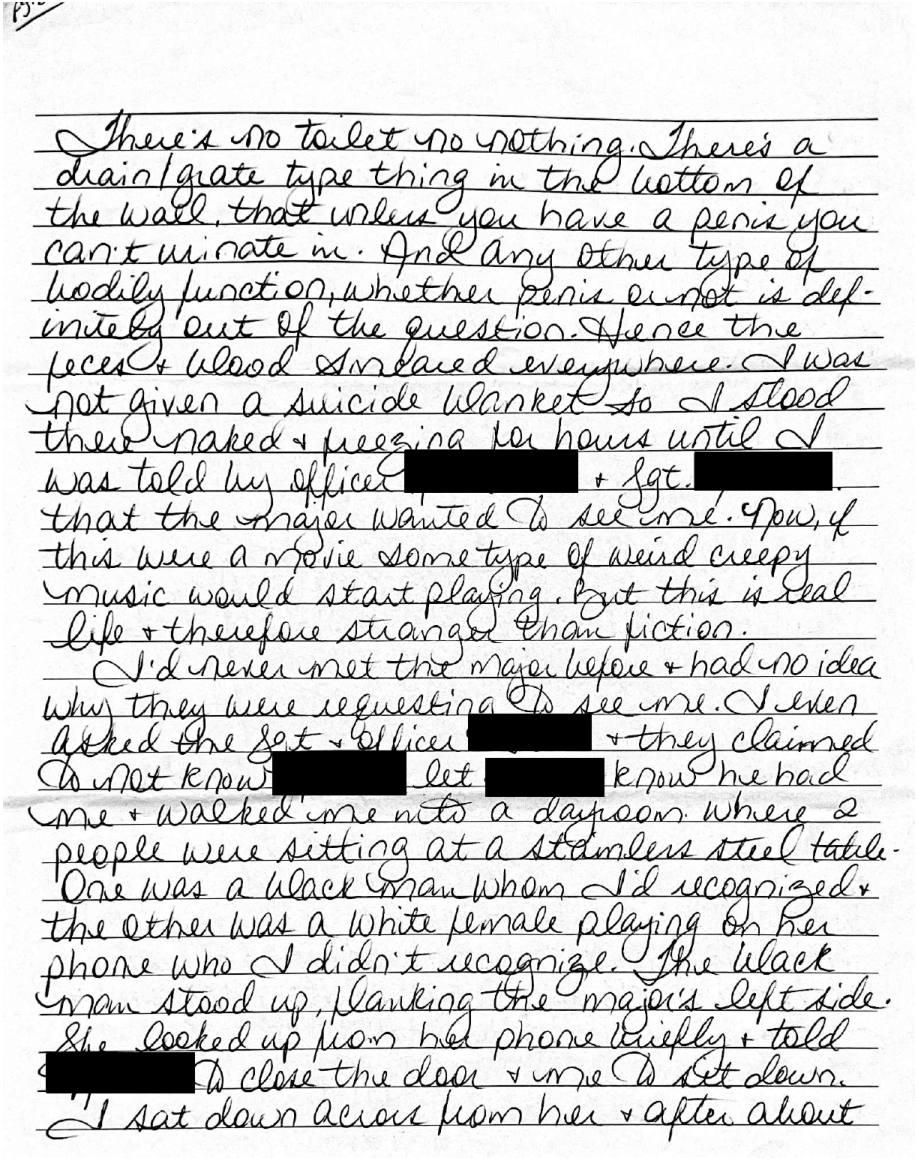 There's no toilet no nothing. There's a
drain/grate type thing in the bottom of
the wall, that unless you have a penis you
can't urinate in. And any other type of
bodily function, whether penis or not is def-
initely out of the question. Hence the
feces + blood smeared everywhere. I was
not given a suicide blanket so I stood
there naked + freezing for hours until I
was told by officer + Sgt.
that the major wanted to see me. Now, if
this were a movie some type of weird creepy
music would start playing. But this is real
life + therefore stranger than fiction.
I'd never met the major before + had no idea
why they were requesting to see me. I even
asked the Sgt + officer + they claimed
to not know let know he had
me + walked me into a dayroom where 2
people were sitting at a stainless steel table.
One was a black man whom I'd recognized +
the other was a white female playing on her
phone who I didn't recognize. The black
man stood up, flanking the major's left side.
She looked up from her phone briefly + told
to close the door + me to sit down.
I sat down across from her + after about